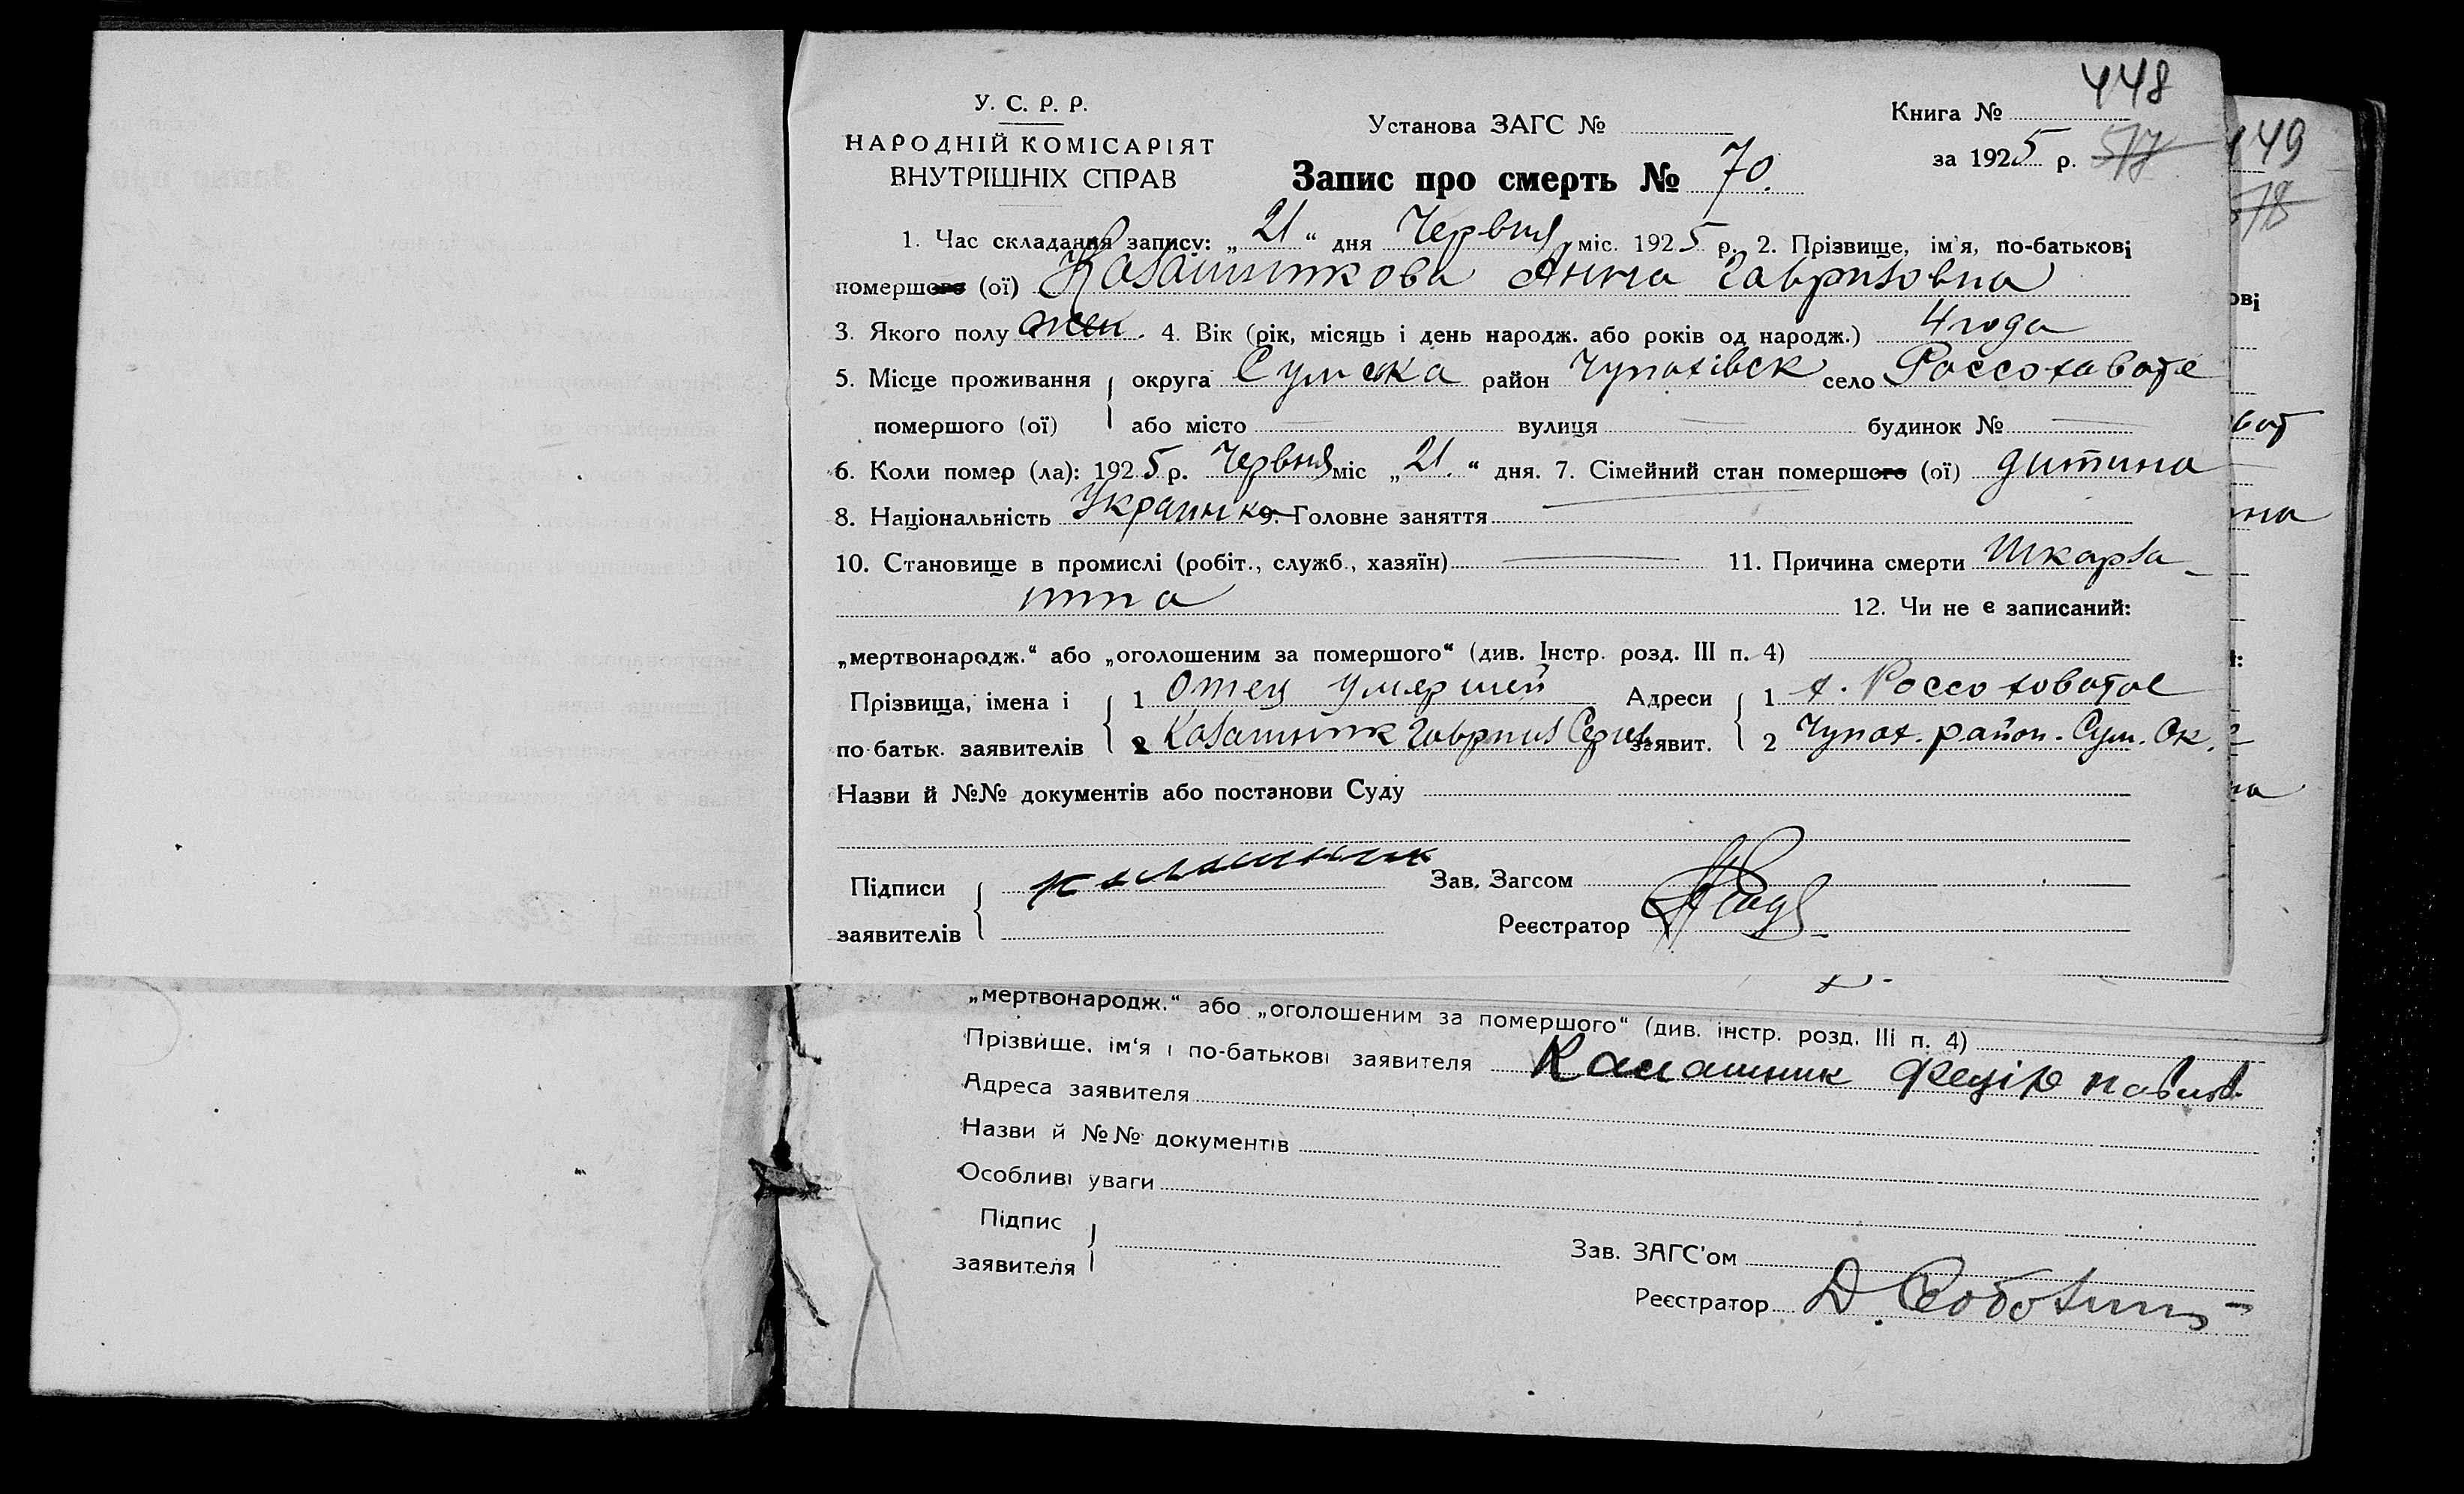 448
У. С. Р. Р.
НАРОДНІЙ КОМІСАРІЯТ
ВНУТРІШНІХ СПРАВ
Установа ЗАГС №
Книга №
за 1925 р. 517
Запис про смерть № 70.
1. Час складання запису: „21“ дня Червня міс. 1925 р. 2. Прізвище, ім'я, по-батькові
помершого (ої) Калашникова Анна Гавриловна
3. Якого полу жен. 4. Вік (рік, місяць і день народж. або років од народж.) 4 года
5. Місце проживання округа Сумська район Чупахівск село Россоховате
помершого (ої) або місто — вулиця — будинок № —
6. Коли помер (ла): 1925 р. Червня міс „21.“ дня. 7. Сімейний стан помершого (ої) дитина
8. Національність Украинка 9. Головне заняття —
10. Становище в промислі (робіт., служб., хазяїн) — 11. Причина смерти Шкарла-
тина
12. Чи не є записаний:
„мертвонародж.“ або „оголошеним за помершого“ (див. Інстр. розд. III п. 4)
Прізвища, імена і 1 Отец умершей Адреси 1 х. Россоховатое
по батьк. заявителів 2 Калашник Гаврил Серг. заявит. 2 Чупах. район. Сум. Ок.
Назви й №№ документів або постанови Суду
Підписи Калашник Зав. Загсом
заявителів Реєстратор
149
578
ові
ват
на
на
„мертвонародж.“ або „оголошеним за помершого“ (див. інстр. розд. III п. 4)
Прізвище, ім'я і по-батькові заявителя Калашник Федір Павлов.
Адреса заявителя
Назви й №№ документів
Особливі уваги
Підпис
заявителя
Зав. ЗАГС'ом
Реєстратор Д.